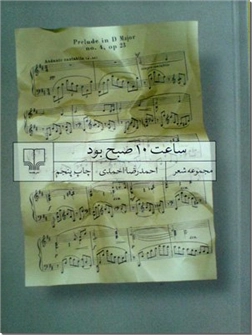 Prelude in D Major
no. 4, op 23
Andante cantabile
ساعت ۱۰ صبح بود
مجموعه شعر
احمدرضا احمدی
چاپ پنجم